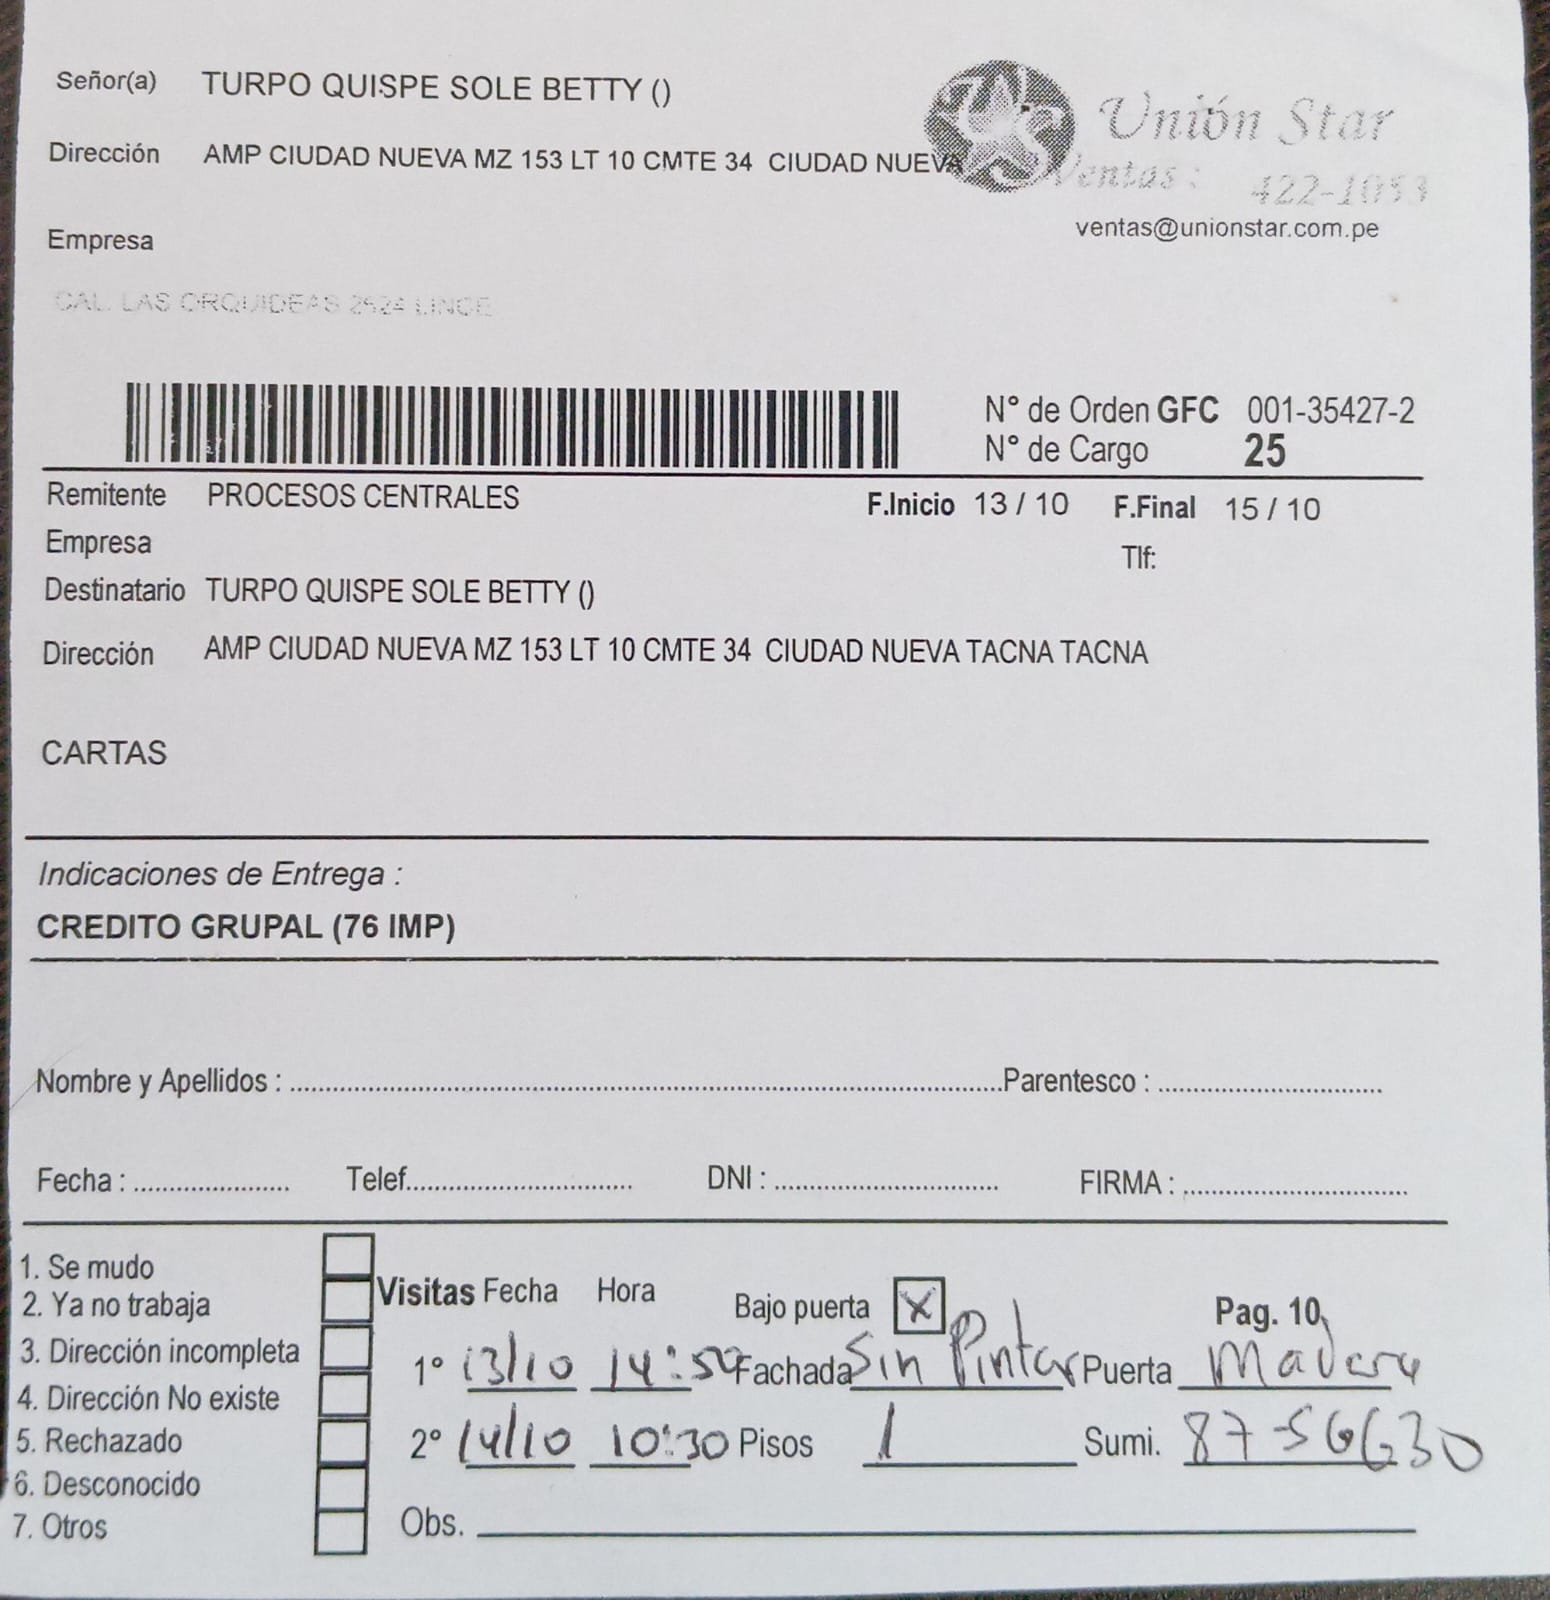 Señor(a) TURPO QUISPE SOLE BETTY ()
Unión Star
Dirección AMP CIUDAD NUEVA MZ 153 LT 10 CMTE 34 CIUDAD NUEVA
Ventas: 422-1053
ventas@unionstar.com.pe
Empresa
CAL. LAS ORQUIDEAS 2624 LINCE
N° de Orden GFC 001-35427-2
N° de Cargo 25
Remitente PROCESOS CENTRALES F.Inicio 13 / 10 F.Final 15 / 10
Empresa Tlf:
Destinatario TURPO QUISPE SOLE BETTY ()
Dirección AMP CIUDAD NUEVA MZ 153 LT 10 CMTE 34 CIUDAD NUEVA TACNA TACNA
CARTAS
Indicaciones de Entrega :
CREDITO GRUPAL (76 IMP)
Nombre y Apellidos : Parentesco :
Fecha : Telef. DNI : FIRMA :
1. Se mudo
2. Ya no trabaja
3. Dirección incompleta
4. Dirección No existe
5. Rechazado
6. Desconocido
7. Otros
Visitas Fecha Hora Bajo puerta X Pag. 10
1° 13/10 14:50 Fachada Sin Pintar Puerta Madera
2° 14/10 10:30 Pisos 1 Sumi. 87-56630
Obs.